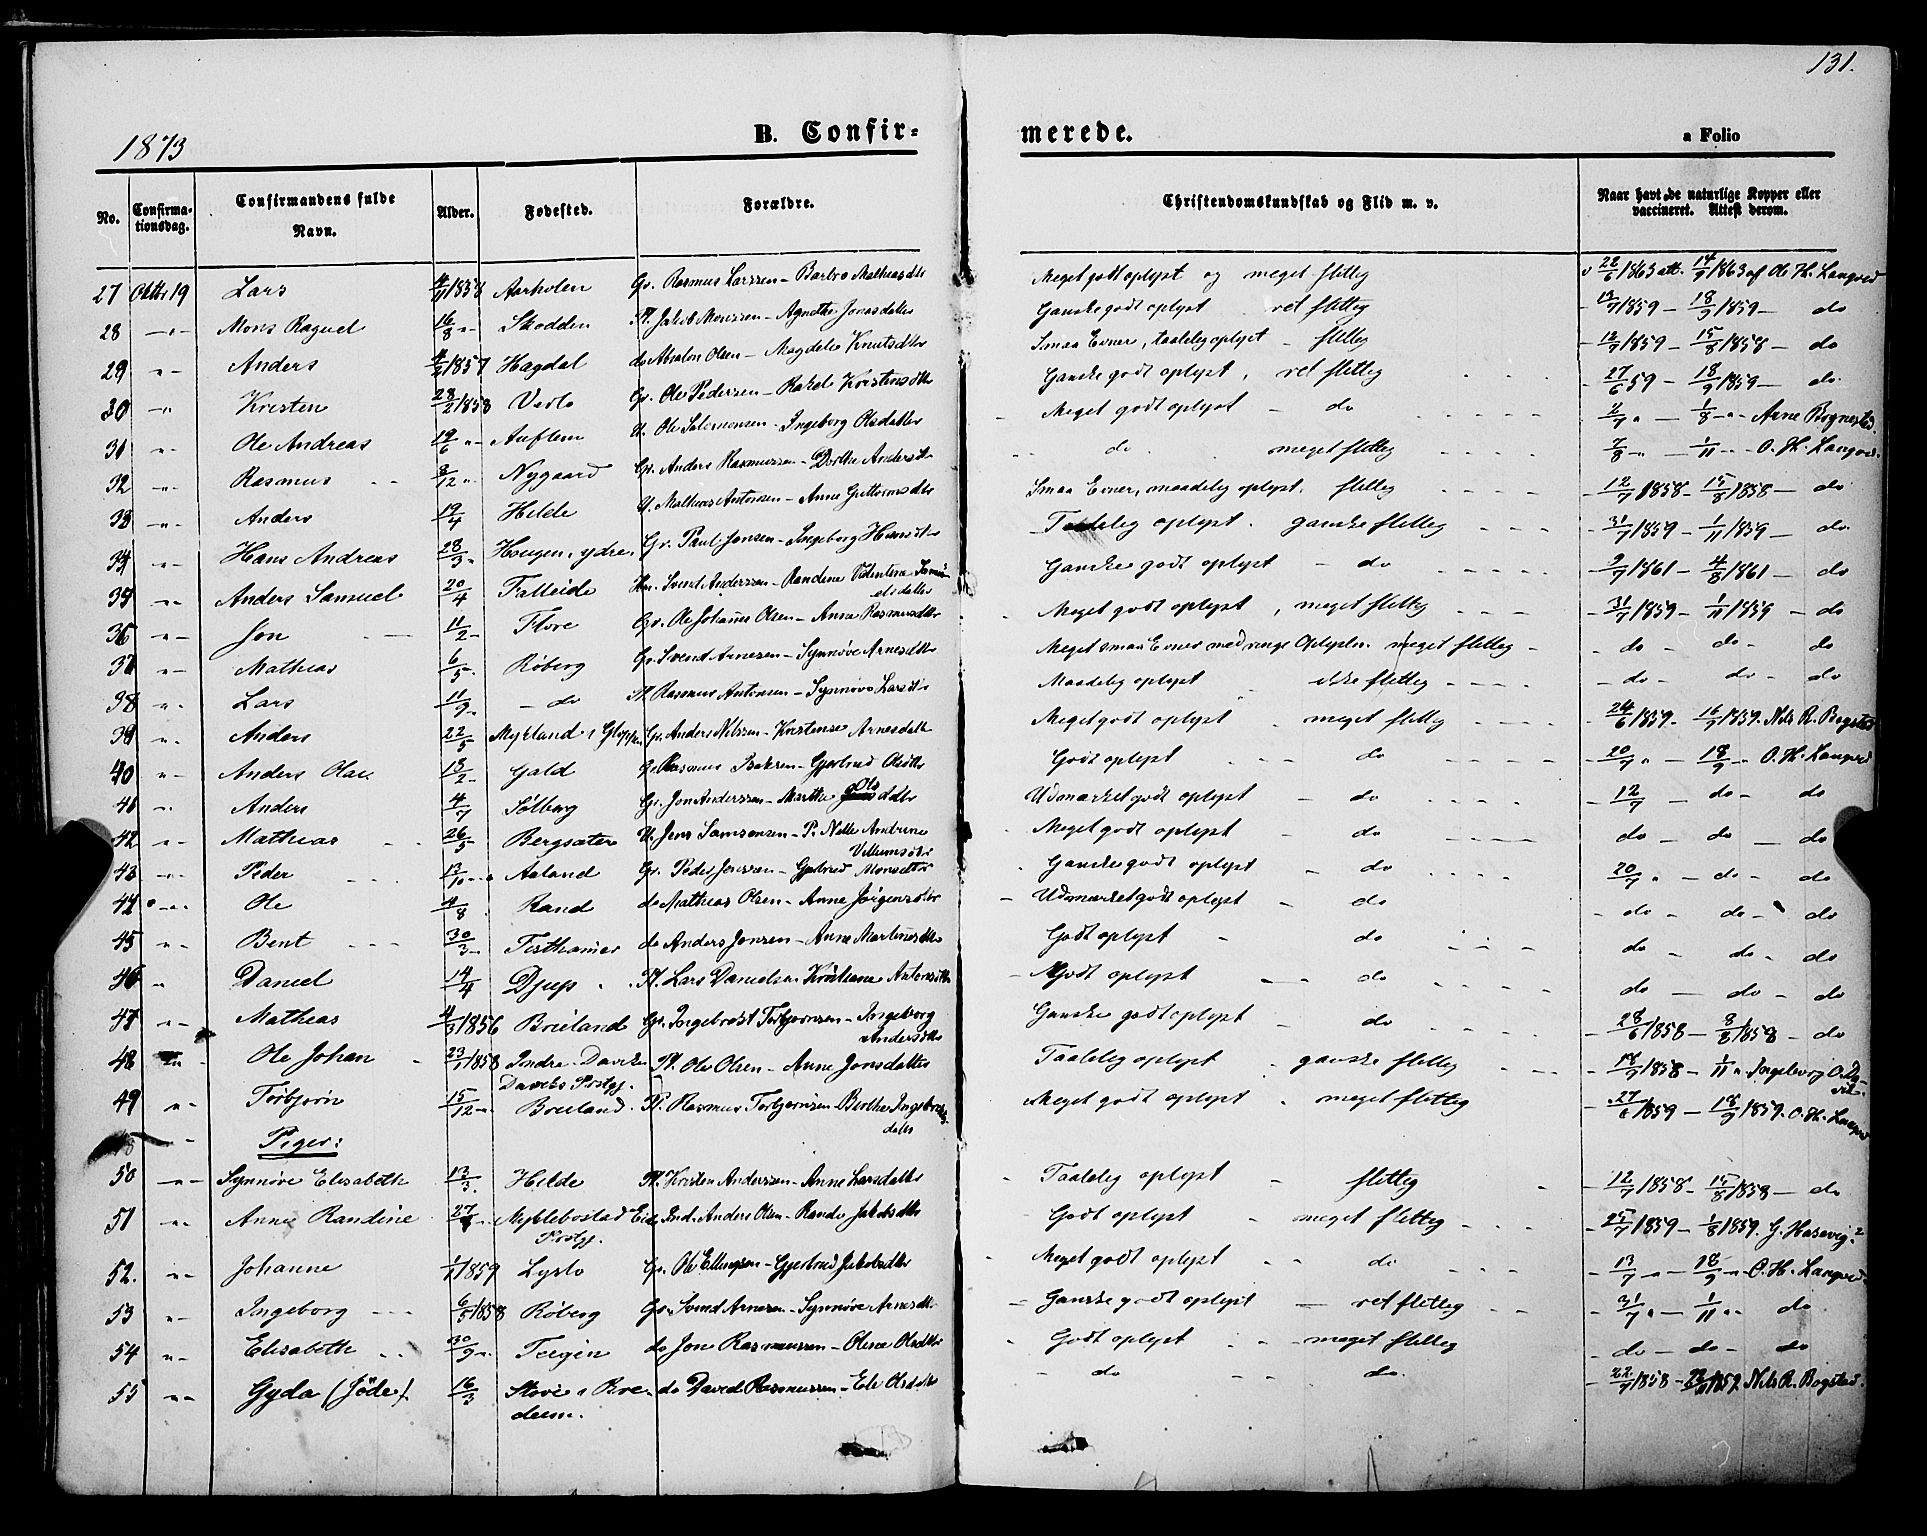 131.
1873
B. Confirmerede.
a Folio
No. Confirmationsdag. Confirmandens fulde Navn. Alder. Fødested. Forældre. Christendomskundskab og Flid m. v. Naar havt de naturlige Kopper eller vaccineret. Attest derom.
27 Oktbr 19 Lars 1858 Aarholen Gr. Rasmus Larssen - Barbro Mathiasdtr Meget godt oplyst og meget flittig 22/6 1863 att. 14/9 1863 af Ole H. Langved
28 -"- Mons Raguel 16/8 "- Skodden Pl. Jakob Monssen - Agnethe Jonasdatter Ganske godt oplyst ret flittig - 13/7 1859 - 18/9 1859 - do
29 "- Anders 1857 Hagdal do Absalon Olsen - Magdeli Knutsdtr Smaa Evner, taalelig oplyst - flittig - 12/7 1859 - 15/8 1858 - do
30 -" Kristen 28/2 1858 Vedlo Gr. Ole Pedersen - Rakel Kristensdtr Ganske godt oplyst, ret flittig - 27/6 59 - 18/9 1859 - do.
31 "- Ole Andreas 19/6 "- Auflem U. Ole Salomonsen - Ingeborg Olsdatter Meget godt oplyst - do - 2/7 " - 1/8 -"- Arne Bognestad
32 -"- Rasmus 8/12 "- Nygaard Gr. Anders Rasmussen - Dorthe Andersdtr do. meget flittig 7/8 -"- 1/11 -"- O. H. Langved.
33 -"- Anders 19/4 Hilde U. Mathias Antonsen - Anne Guttormsdtr Smaa Evner, maadelig oplyst. flittig - 12/7 1858 - 15/8 1858 - do
34 -"- Hans Andreas 28/3 " Haugen, ydre Gr. Paul Jonsen - Ingeborg Hansdtr - Taalelig oplyst. ganske flittig - 31/7 1859 - 1/11 1859 - do.
35 -"- Anders Samuel 20/4 Falleide Svend Anderssen - Randine Samuelsdatter Ganske godt oplyst - do - 9/7 1861 - 4/8 1861 - do
36 -"- Jon 11/2 - Flore Gr. Ole Johanes Olsen - Anne Rasmusdtr Meget godt oplyst, meget flittig - 31/7 1859 - 1/11 1859 - do
37 "- Mathias 6/5 - Røberg Gr. Svend Arnesen - Synnøve Arnesdtr Meget smaa Evner med ringe Oplysn. meget flittig - - do - do - do
38 "- Lars 11/9 " - do Pl. Rasmus Antonsen - Synnøve Larsdtr Maadelig oplyst ikke flittig - do - do - do
39 "- Anders 22/5 Mykland i Gloppen Gr. Anders Nilssen - Kristense Arnesdtr Meget godt oplyst - meget flittig - 24/6 1859 - 16/9 1859. Nils R. Bogstad
40 -"- Anders Olai 13/2 - Gald Gr. Rasmus Isaksen - Gjertrud Olsdtr Godt oplyst - do - 20/7 " - 18/9 -" O. H. Langved
41 -"- Anders 4/7 Sølberg Gr. Jon Anderssen - Marthe Olsdtr Udmærket godt oplyst - do - 12/7 - do - do
42 -"- Mathias 26/5 - Bergsæter U. Jens Samsonsen - P. Nille Andrine Villumsdtr Meget godt oplyst - do do - do - do
43 -"- Peder 13/10 -" Aaland Gr. Peder Jonssen - Gjertrud Monsdtr Ganske godt oplyst - do 20/7 " - do - do
44 -"- Ole Rand do Mathias Olsen - Anne Jørgensdtr - Udmærket godt oplyst - do - do - do - do
45 "- Bent 30/3 - Tisthamer do Anders Jonsen - Anne Martinusdtr Godt oplyst - do do - do - do
46 " Daniel 14/4 Djup Pl. Lars Danielsen Kristiane Antonsdtr - Godt oplyst - do do - do - do
47 -"- Mathias 1856 Breland Gr. Ingebrigt Torbjørnsen - Ingeborg Andersdtr Ganske godt oplyst - do - 28/6 1858 - 8/8 1858 - do
48 Ole Johan 23/1 1858 Indre Davik Daviks Prstgj. Pl. Ole Olsen - Anne Jonsdatter Taalelig oplyst - ganske flittig 1858 - 1/11 " Ingeborg O.
49 "- Torbjørn 15/12 -" Breland. Pl. Rasmus Torbjørnsen - Berthe Ingebrigtsdatter Meget godt oplyst - meget flittig - 27/6 1859 - 18/9 1859. O. H. Langved
Piger:
50 -"- Synnøve Elisabeth 13/3 Hilde Pl. Kristen Anderssen - Anne Larsdatter Taalelig oplyst - flittig - 12/7 1858 - 15/8 1858 - do
51 -"- Anne Randine 27/ "- Myklebostad Eid Prstgj. Ind. Anders Olsen - Rande Jakobsdtr Godt oplyst - meget flittig - 25/7 1859 - 1/8 1859. G. Hasevig?
52. -"- Johanne 1/1 1859 Lyslo Gr. Ole Ellingsen - Gjertrud Jakobsdtr Meget godt oplyst - do - 13/7 -"- 18/9 -" O. H. Langved
53 -"- Ingeborg 6/5 1858 Røberg Gr. Svend Arnesen - Synnøve Arnesdtr - Ganske godt oplyst - ret flittig - 31/7 " - 1/11 "- do
54 "- Elisabeth 30/9 "- Teigen do Jon Rasmussen - Oline Olsdtr Godt oplyst - meget flittig - do - do - do
55 -"- Gyda (Jøde) 16/3 Støve i Bredeim. do David Rasmussen - Eli Olsdtr - do - do. - 22/7 1858 - 1859 Nils R. Bogstad.